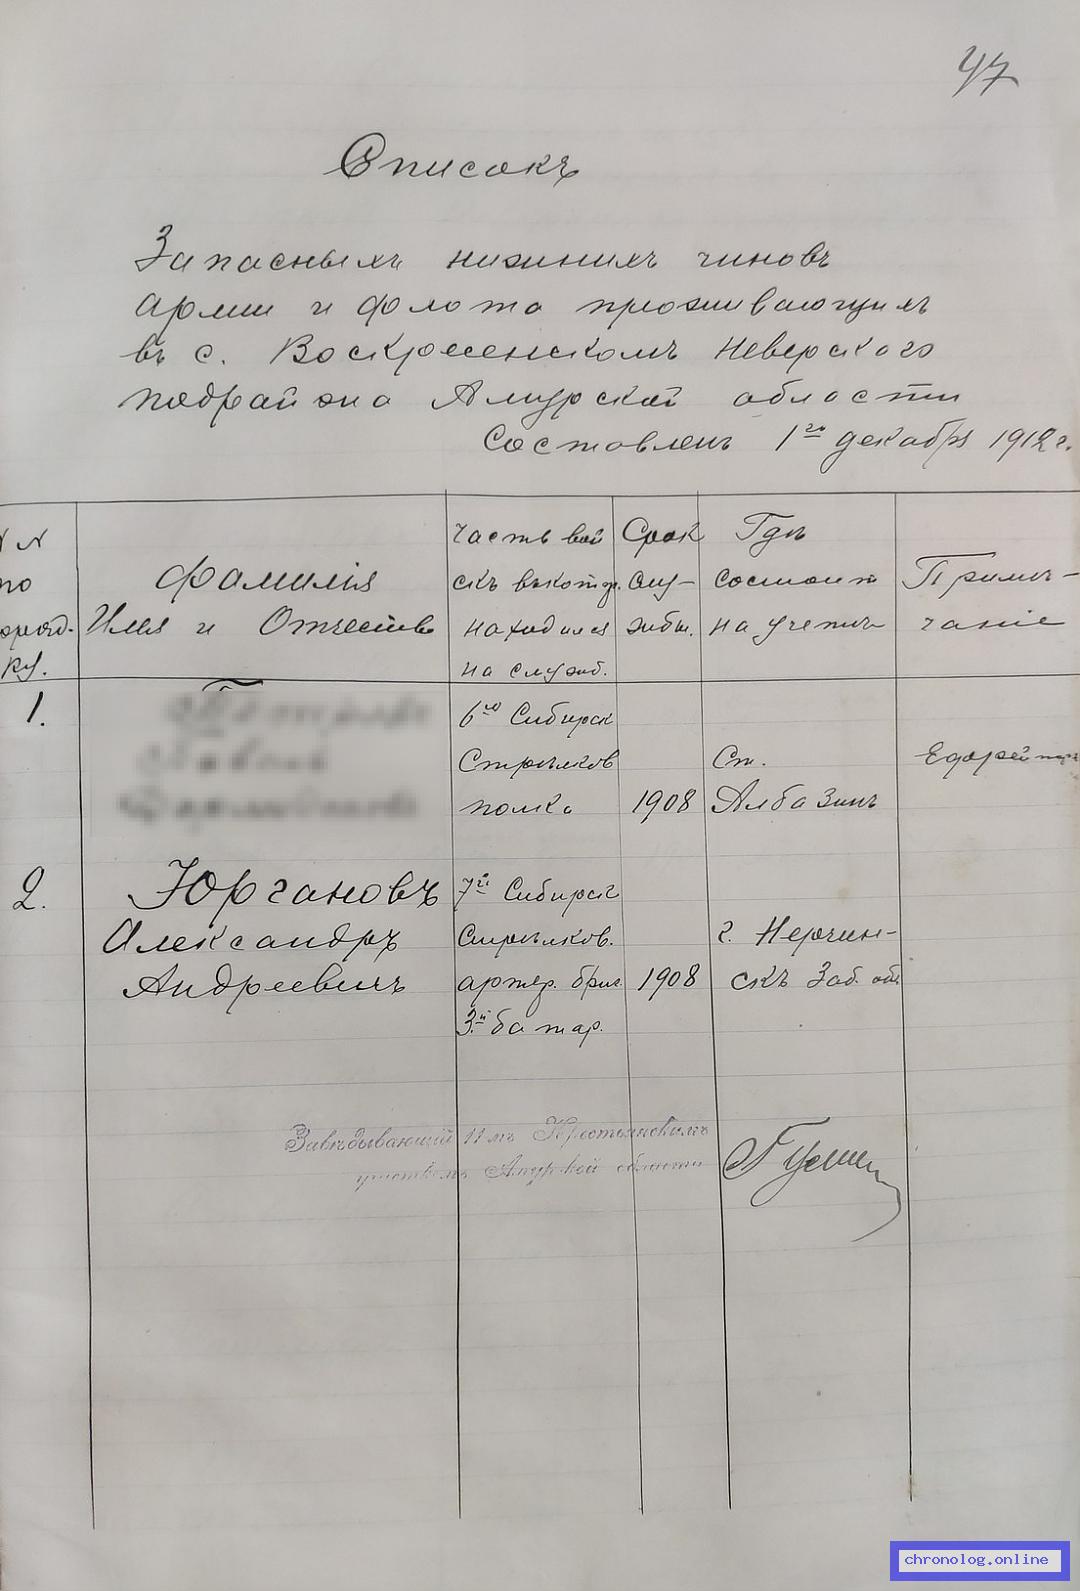 47
Списокъ
Запасныхъ нижнихъ чиновъ
армии и флота проживающихъ
въ с. Воскресенскомъ Неверского
подрайона Амурской области
Составленъ 1го декабря 1912 г.
N N
по
поряд-
ку.
Фамилія
Имя и Отчество
Часть вой
скъ въкотор.
находился
на служб.
Срок
слу-
жбы.
Гдѣ
состоит
на учетѣ
Примѣ-
чаніе
1.
6го Сибирск
Стрѣлков
полка
1908
Ст.
Албазинъ
Ефрейтор
2.
Юргановъ
Александръ
Андреевичъ
7й Сибирск
Стрѣлков.
артил. бриг.
3й батар.
1908
г. Нерчин-
скъ Заб. обл.
Завѣдывающій 11мъ Крестьянскимъ
участкомъ Амурской области
chronolog.online